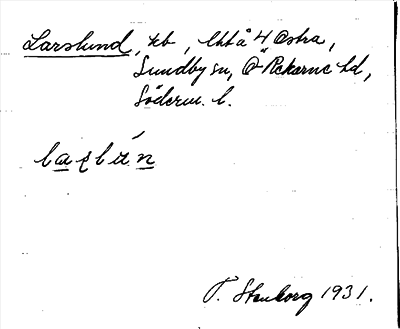 Larslund, kb, Uttå 4 Östra,
Sundby sn, Ö Rekarne hd,
Söderm. l.
laʂlún
T. Stenborg 1931.